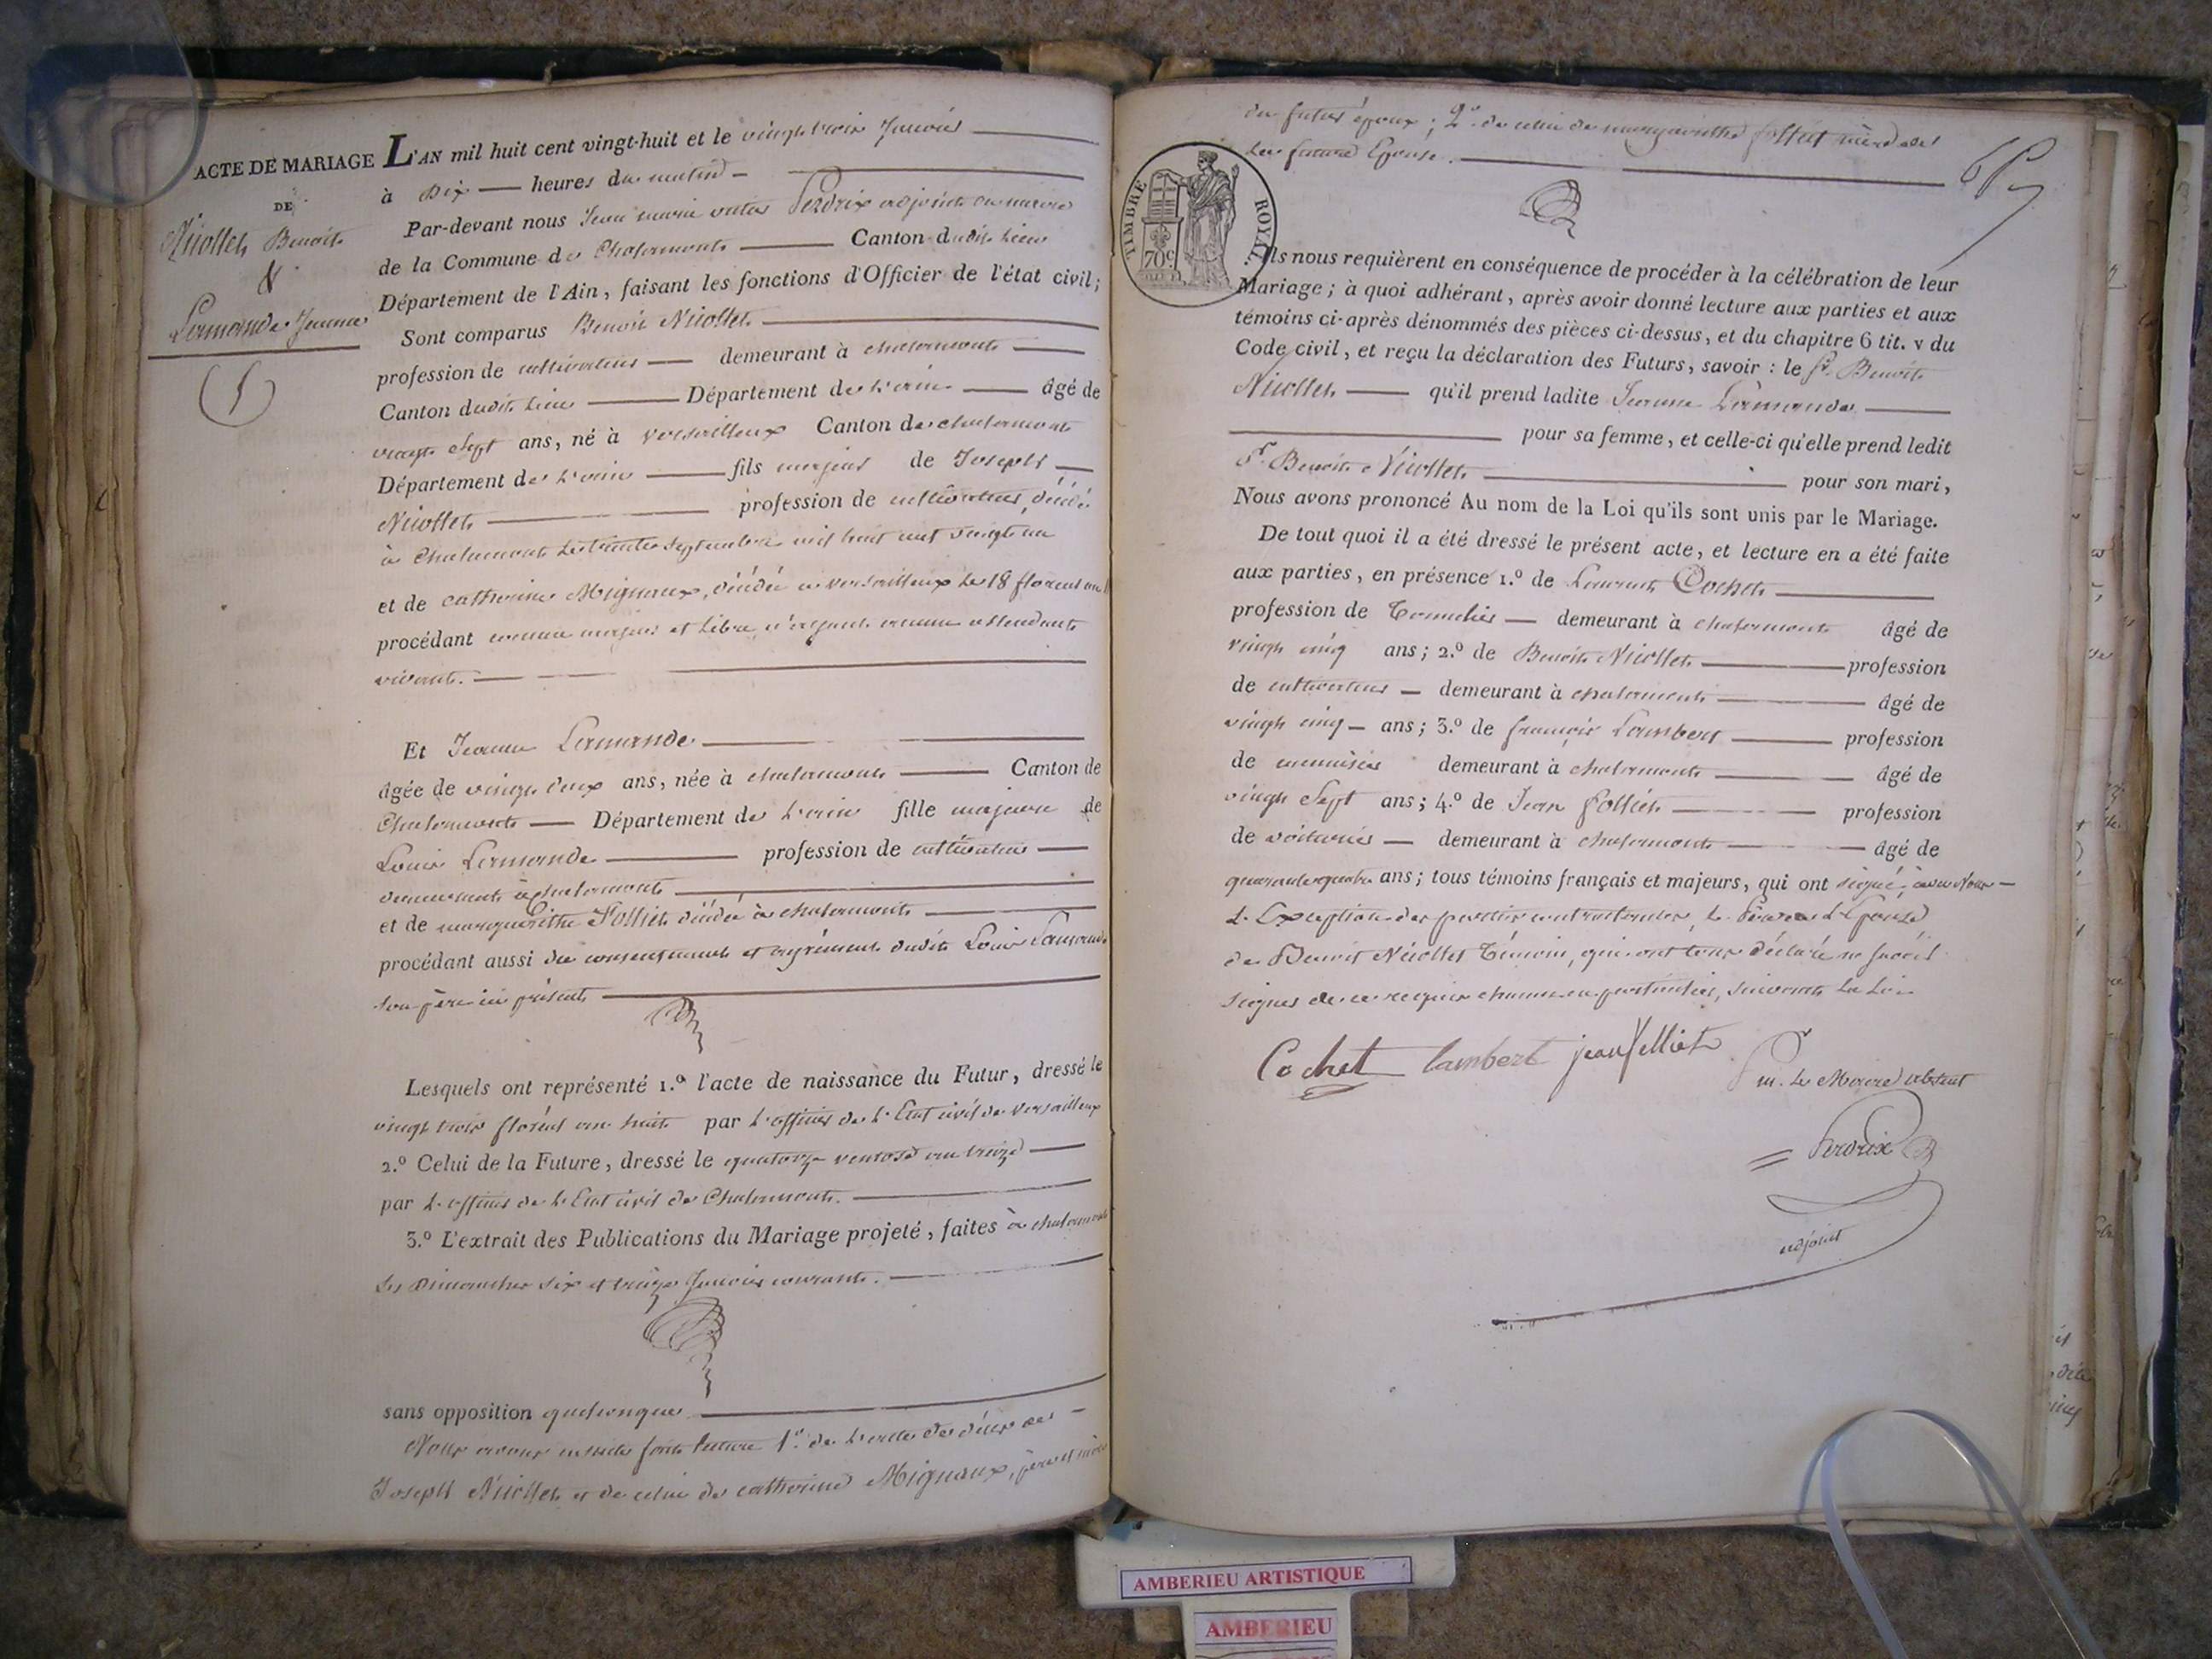 ACTE DE MARIAGE
DE
Niollet Benoit
&
Lamande Jeanne
(5)
L'AN mil huit cent vingt-huit et le vingt trois Janvier
à Dix heures du matin
Par-devant nous Jean marie Perdrix adjoint au maire
de la Commune de Chalamont Canton dudit lieu
Département de l'Ain, faisant les fonctions d'Officier de l'état civil;
Sont comparus Benoit Niollet
profession de cultivateur demeurant à chalamont
Canton dudit lieu Département de l'ain âgé de
vingt Sept ans, né à versailleux Canton de chalamont
Département de l'ain fils majeur de Joseph
Niollet profession de cultivateur, décédé
à Chalamont le trente Septembre mil huit cent vingt un
et de catherine Mignaux, décédée à versailleux le 18 floréal an
procédant comme majeur et libre, n'ayant aucun ascendant
vivant.
Et Jeanne Lamande
âgée de vingt deux ans, née à chalamont Canton de
Chalamont Département de l'ain fille majeure de
Louis Lamande profession de cultivateur
demeurant à chalamont
et de marguerithe Folliet décédée à chalamont
procédant aussi du consentement et agrément dudit Louis Lamande
son père ici présent
Lesquels ont représenté 1.º l'acte de naissance du Futur, dressé le
vingt trois floréal an huit par l'officier de l'Etat civil de versailleux
2.º Celui de la Future, dressé le quatorze ventose an treize
par l'officier de l'Etat civil de Chalamont.
3.º L'extrait des Publications du Mariage projeté, faites à chalamont
les Dimanches six et treize Janvier courant.
sans opposition quelconque
Nous avons ensuite fait lecture 1º. de l'acte de décès de
Joseph Niollet et de celui de catherine Mignaux, père et mère
du futur époux; 2º. de celui de marguerithe folliet mère de
la future Epouse.
TIMBRE ROYAL
70 c
Ils nous requièrent en conséquence de procéder à la célébration de leur
Mariage; à quoi adhérant, après avoir donné lecture aux parties et aux
témoins ci-après dénommés des pièces ci-dessus, et du chapitre 6 tit. v du
Code civil, et reçu la déclaration des Futurs, savoir : le Sr. Benoit
Niollet qu'il prend ladite Jeanne Lamande
pour sa femme, et celle-ci qu'elle prend ledit
Sr. Benoit Niollet pour son mari,
Nous avons prononcé Au nom de la Loi qu'ils sont unis par le Mariage.
De tout quoi il a été dressé le présent acte, et lecture en a été faite
aux parties, en présence 1.º de Laurent Cochet
profession de Tonnelier demeurant à chalamont âgé de
vingt cinq ans; 2.º de Benoit Niollet profession
de cultivateur demeurant à chalamont âgé de
vingt cinq ans; 3.º de françois Lambert profession
de menuisier demeurant à chalamont âgé de
vingt Sept ans; 4.º de Jean folliet profession
de voiturier demeurant à chalamont âgé de
quarante quatre ans; tous témoins français et majeurs, qui ont signé, avec Nous
à l'Exception des parties contractantes, le Père de l'Epouse
de Benoit Niollet Témoin, qui ont tous déclaré ne savoir
signer de ce requis chacun en particulier, suivant la Loi
Cochet lambert jean folliet
Pr. m. le Maire absent
Perdrix
adjoint
AMBERIEU ARTISTIQUE
AMBERIEU